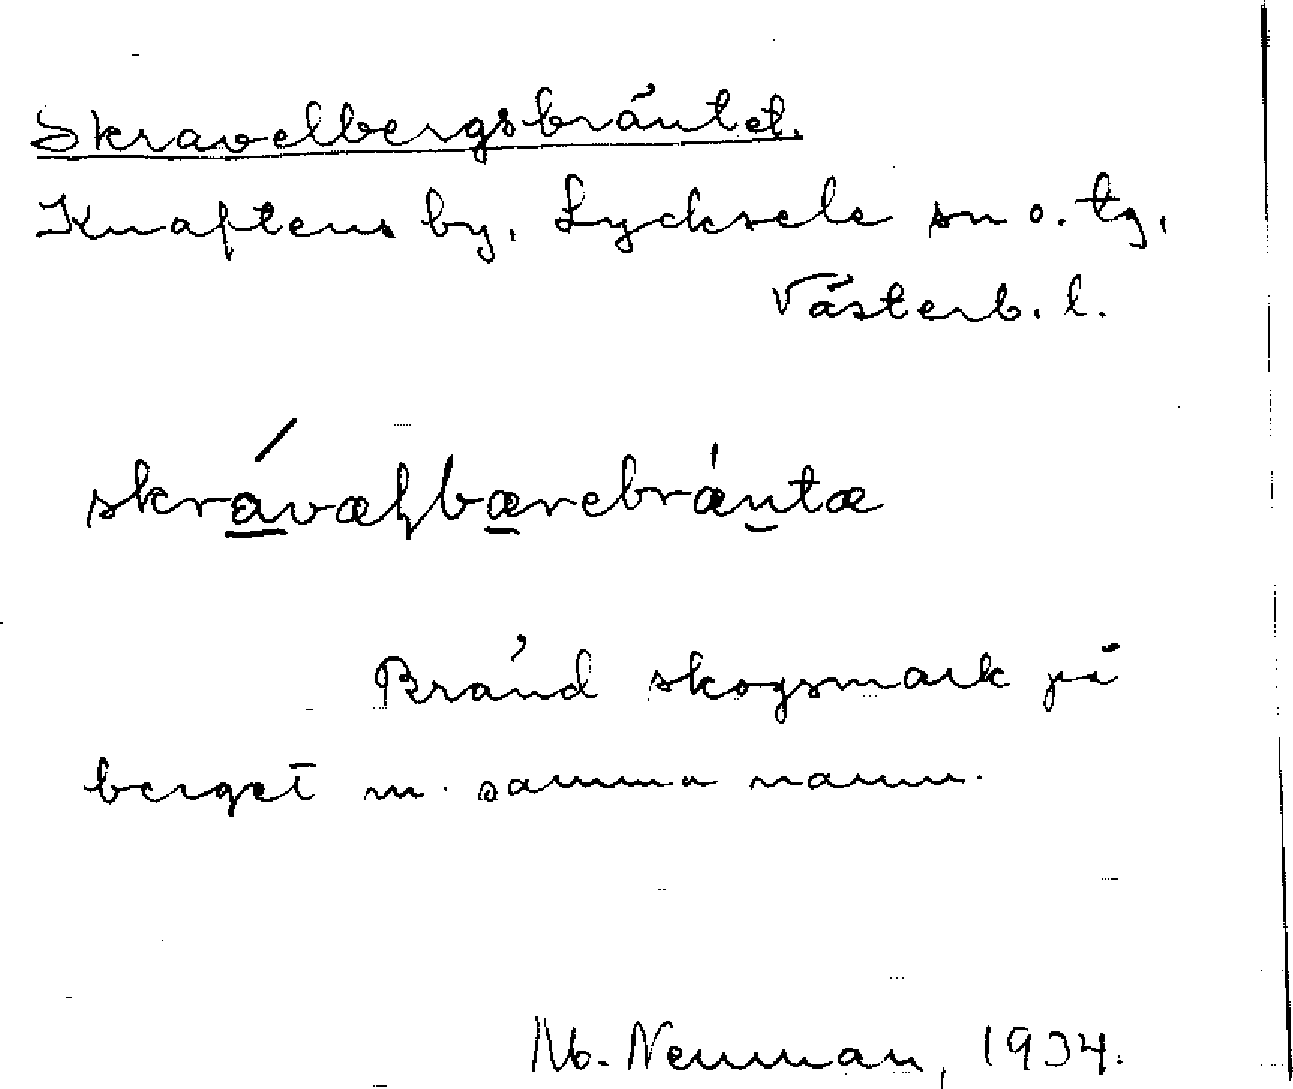 Skravelbergsbräntet.
Knaftens by, Lycksele sn o. tg.
Västerb. l.
skrávæḷbærebrántæ
Bränd skogsmark på
berget m. samma namn.
M. Neuman, 1934.